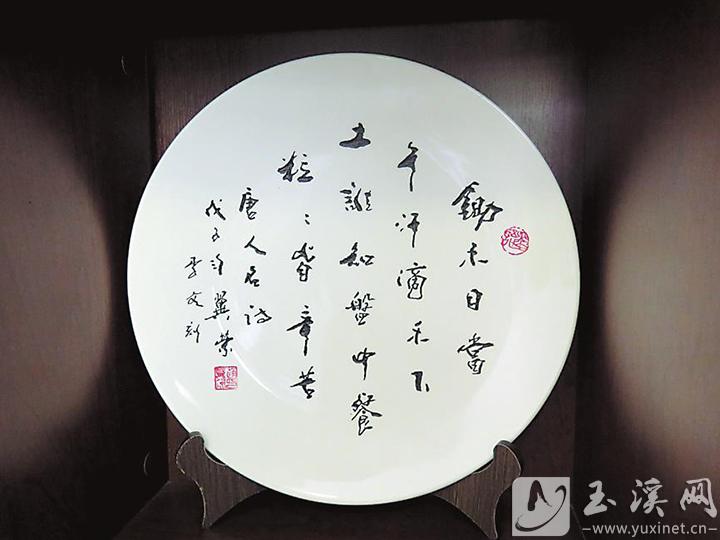 鋤禾日當
午汗滴禾下
土誰知盤中餐
粒〻皆辛苦
唐人名詩
戊子
玉溪网
www.yuxinet.cn